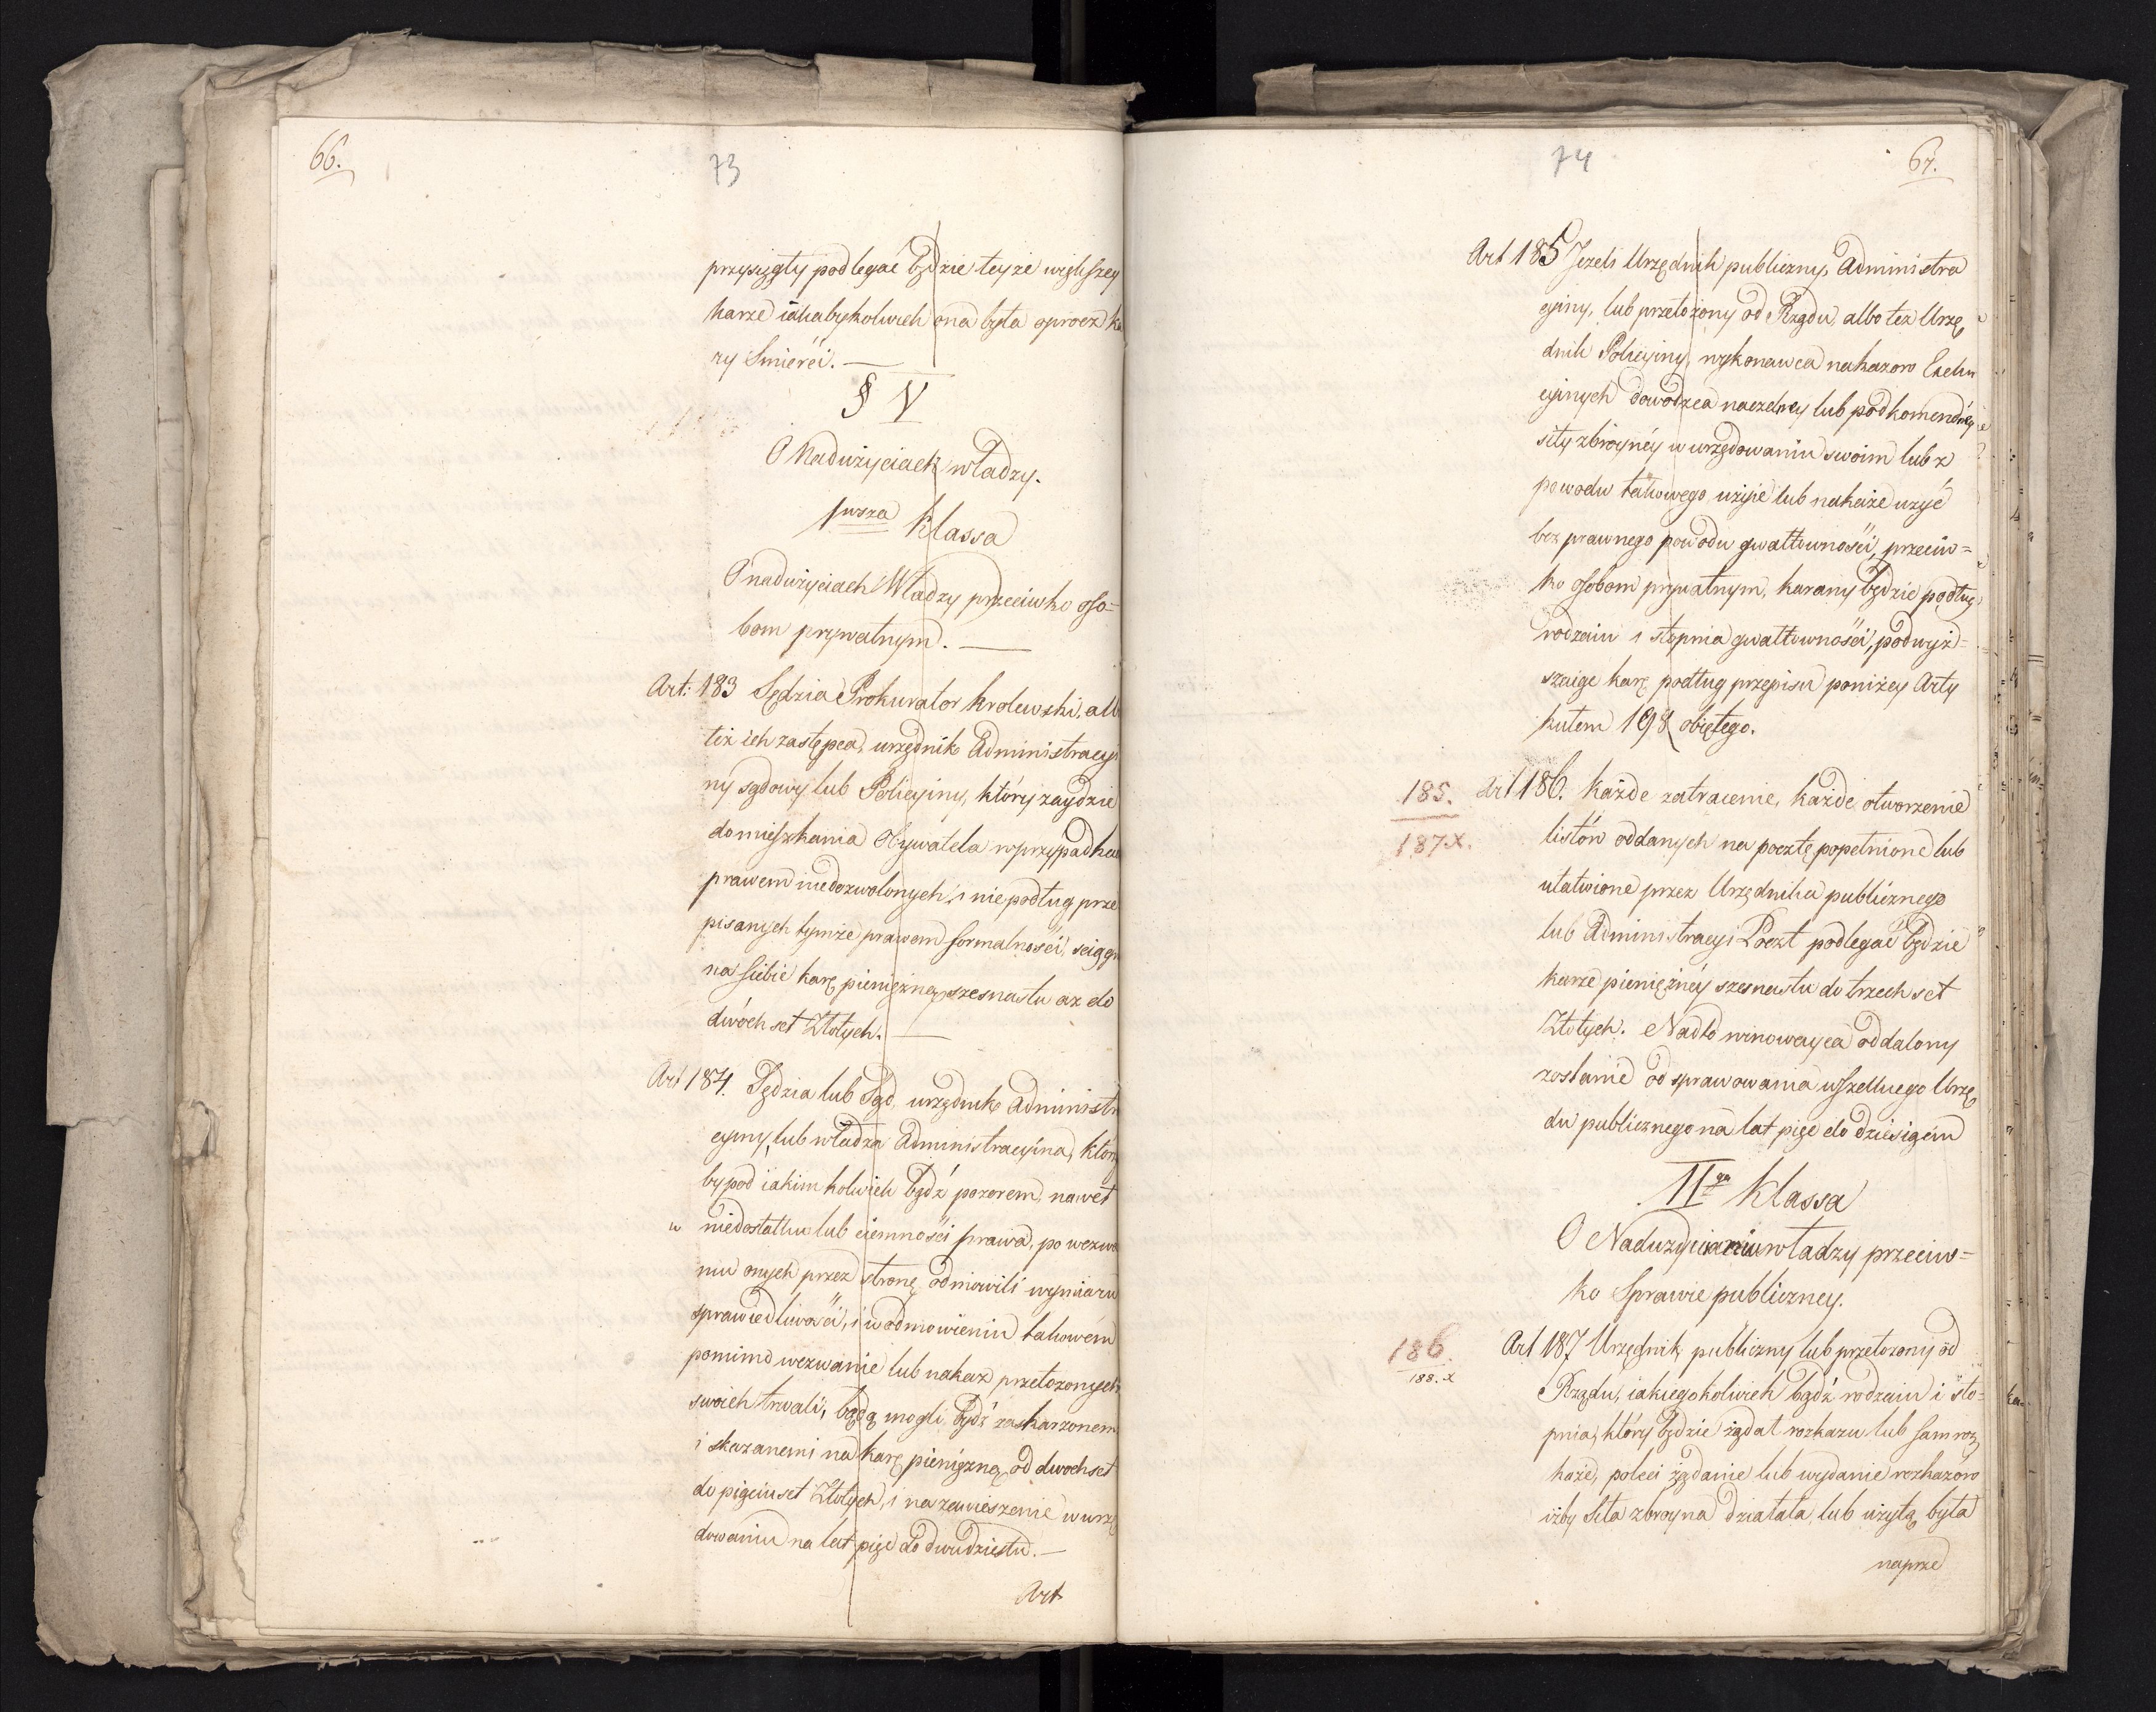 66.
73
przysięgły podlegać będzie teyże większey
karze iakabykolwiek ona była oprocz ka
ry Smierći. —
§ V
O Nadużyciach władzy.
1wsza Klassa
O nadużyciach Władzy przeciwko oso=
bom prywatnym. —
Art: 183 Sędzia Prokurator krolewski, alb
też ich zastępca, urzędnik Administracyi
ny sądowy lub Policyiny, który zaydzie
do mieszkania Obywatela w przypadka
prawem niedozwolonych, i nie podług prze
pisanych tymże prawem formalnośći, sciągn
na siebie karę pieniężną szesnastu az do
dwóch set Złotych. —
Art 184. Sędzia lub Sąd urzędnik Administra
cyiny, lub władza Administracyina, ktorz
by pod iakimkolwiek bądź pozorem, nawet
w niedostatku lub ciemnośći prawa, po wezwa
niu onych przez stronę odmowili wymiaru
sprawiedliwośći, i w odmowieniu takowém
pomimo wezwanie lub nakaz przełozonych
swoich trwali, bądą mogli bydź zaskarzonem
i skazanemi na karę pieniężną od dwochset
do pięciuset Złotych, i na zawieszenie w urzę
dowaniu na lat pięć do dwudziestu. —
Art
74
67.
Art 185 Jezeli Urzędnik publiczny, Administra
cyiny, lub przełożony od Rządu, albo tez Urzę
dnik Policyiny, wykonawca nakazow Exeku
cyinych dowódzca naczelney lub podkomendnéy
siły zbroynéy w urzędowaniu swoim lub z
powodu takowego użyie lub nakaże uzyć
bez prawnego powodu gwałtownośći, przeciw=
ko osobom prywatnym, karany będzie podług
rodzaiu i stopnia gwałtownośći, podwyż=
szaige karę podług przepisu poniżey Arty
kułem 198 obiętego.
185. Art 186. Każde zatracenie, każde otworzenie
187 x. listów oddanych na pocztę popełnione lub
ułatwione przez Urzędnika publicznego
lub Administracyi Poczt podlegać będzie
karze pieniężnéy szesnastu do trzech set
Złotych. Nadto winowayca oddalony
zostanie od sprawowania wszelkiego Urzę
du publicznego na lat pięć do dziesięciu
IIga Klassa
O Naduzyciu władzy przeciw=
ko Sprawie publiczney.
186. Art 187 Urzędnik publiczny lub przełozony od
188. x Rządu, iakiegokolwiek bądź rodzaiu i sto=
pnia, który będzie żądał rozkazu lub sam roz
każe, poleci żądanie lub wydanie rozkazów
iżby Siła zbroyna działała, lub użytą była
naprze